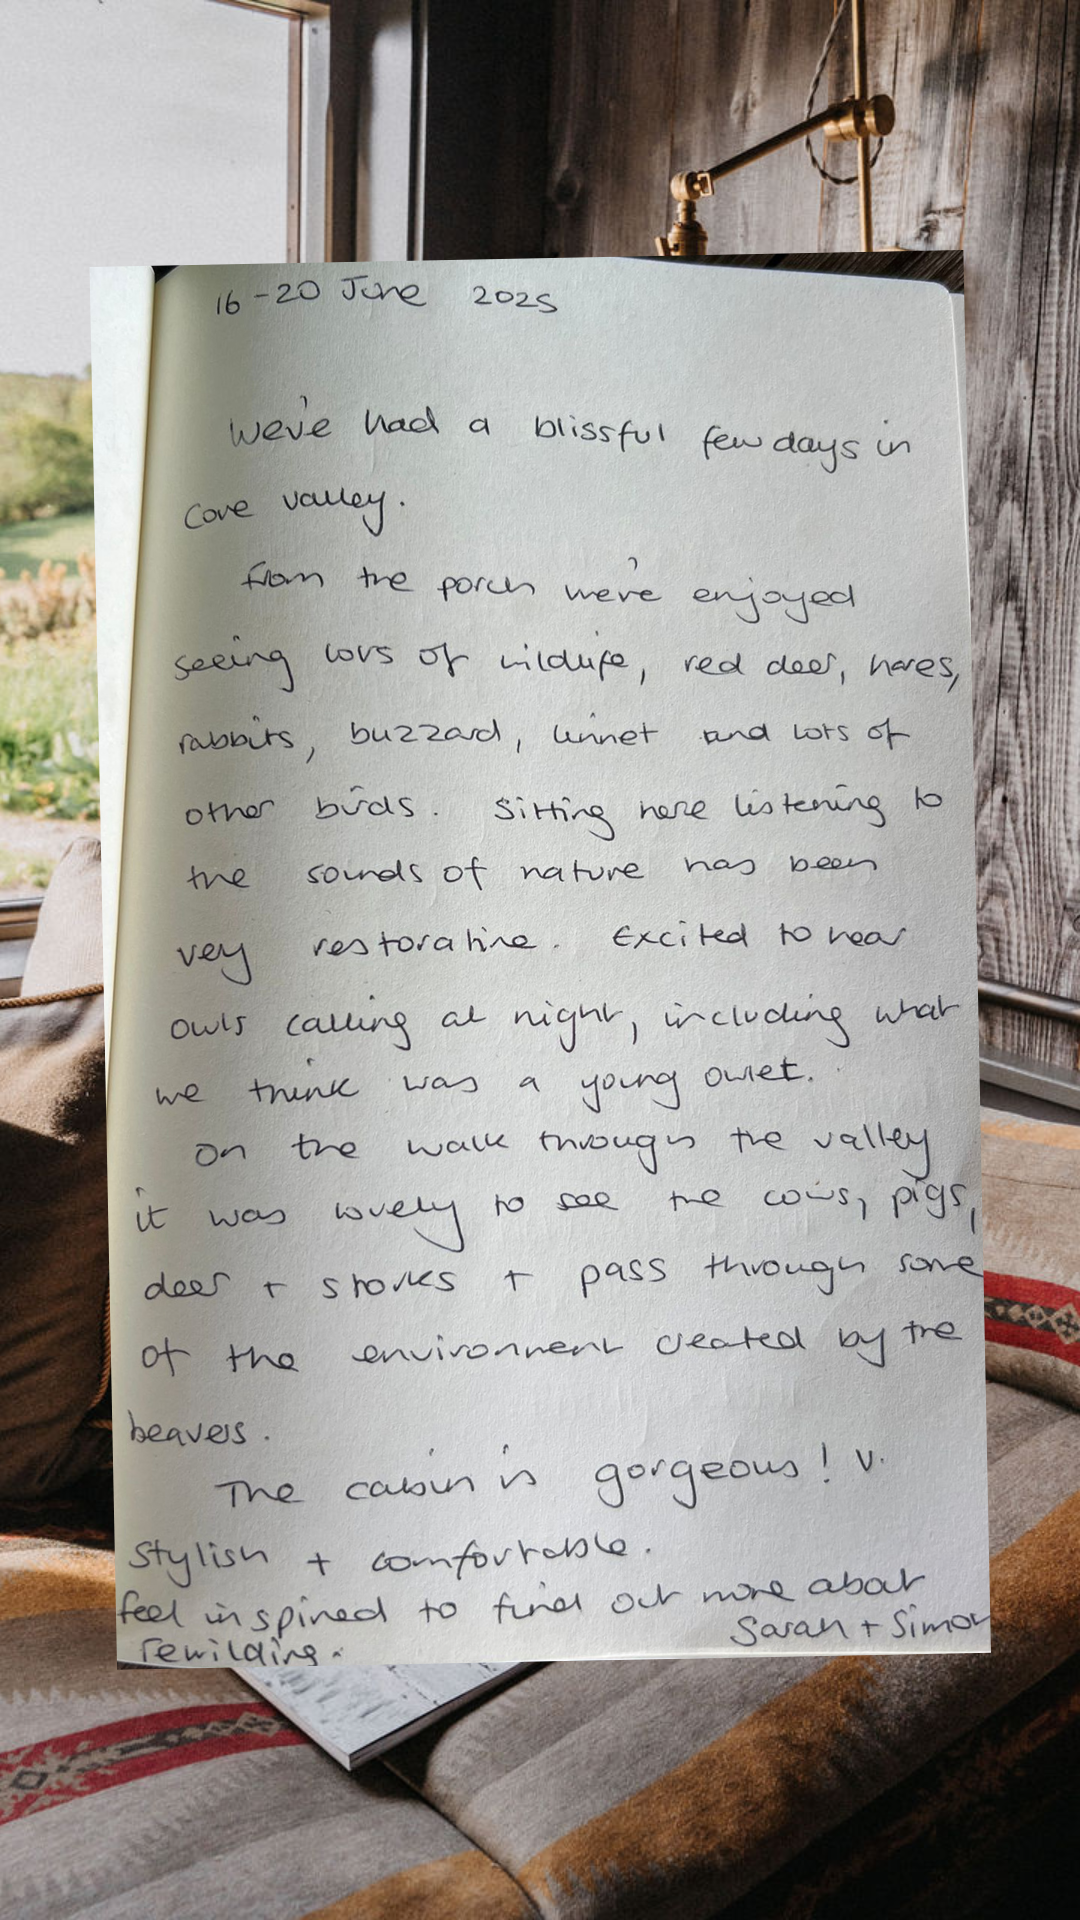 16-20 June 2025
We've had a blissful few days in
Core valley.
From the porch we've enjoyed
seeing lots of wildlife, red deer, hares,
rabbits, buzzard, linnet and lots of
other birds. Sitting here listening to
the sounds of nature has been
very restorative. Excited to hear
owls calling at night, including what
we think was a young owlet.
On the walk through the valley
it was lovely to see the cows, pigs,
deer + storks + pass through some
of the environment created by the
beavers.
The cabin is gorgeous! V.
Stylish + comfortable.
feel inspired to find out more about
rewilding.
Sarah + Simon